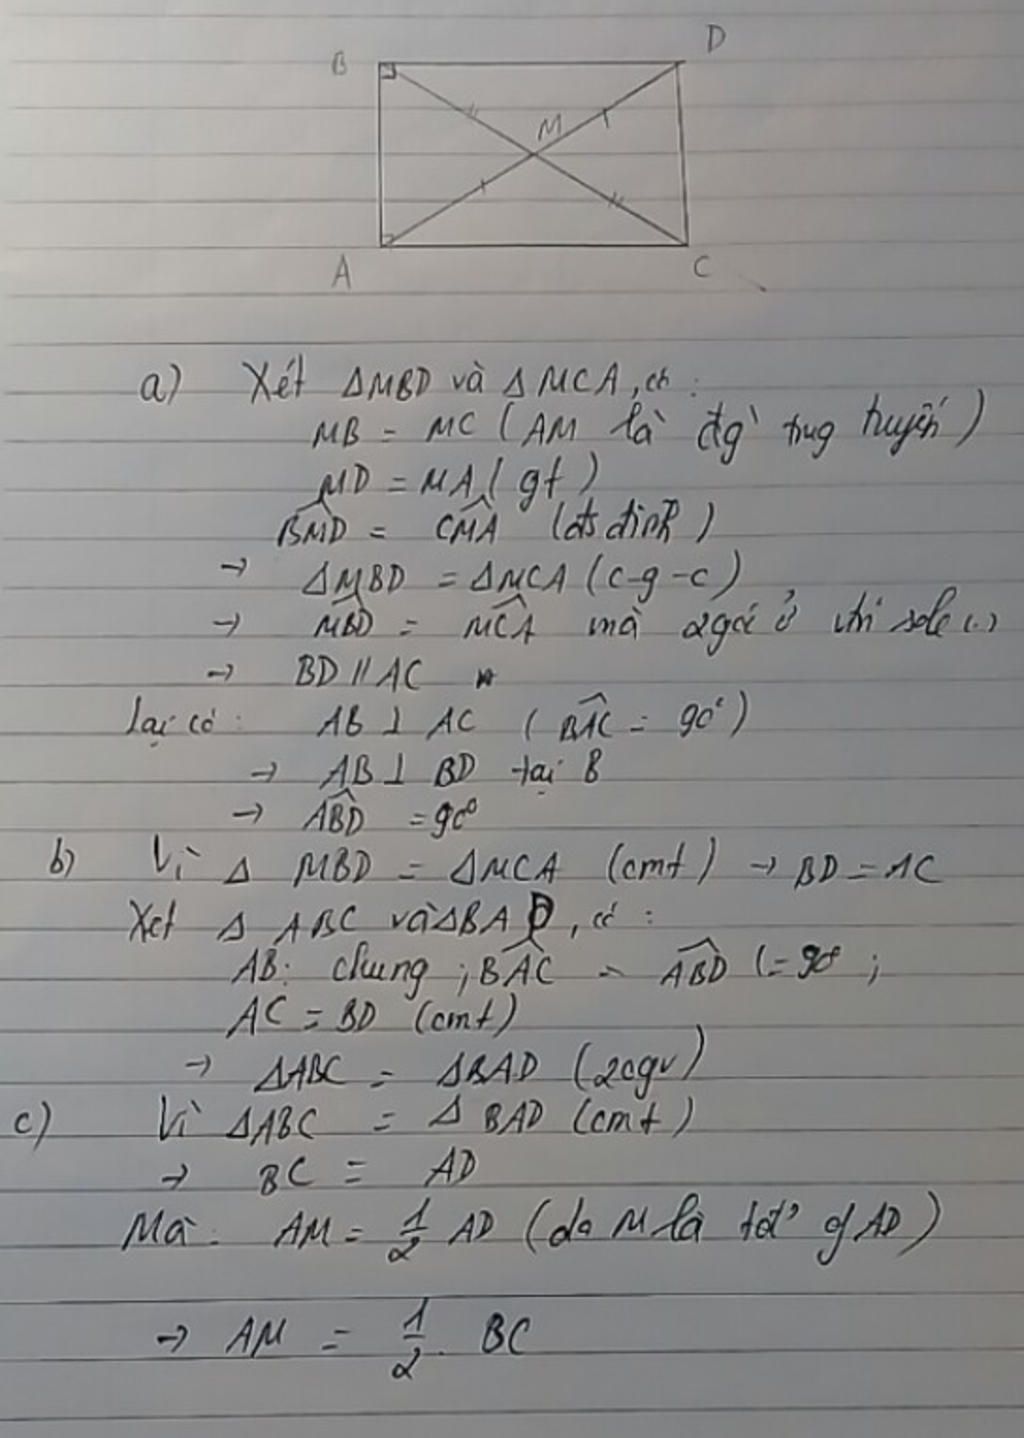 B D
M
A C
a) Xét ΔMBD và ΔMCA, có:
MB = MC (AM là đg` trug tuyến)
MD = MA (gt)
\widehat{BMD} = \widehat{CMA} (đ đỉnh)
→ ΔMBD = ΔMCA (c-g-c)
→ \widehat{MBD} = \widehat{MCA} mà 2góc ở vtrí sole (.)
→ BD // AC
Lại có: AB ⊥ AC (\widehat{BAC} = 90°)
→ AB ⊥ BD tại B
→ \widehat{ABD} = 90°
b) Vì Δ MBD = ΔMCA (cmt) → BD = AC
Xét Δ ABC và ΔBAD, có:
AB: chung ; \widehat{BAC} = \widehat{ABD} (= 90° ;
AC = BD (cmt)
→ ΔABC = ΔBAD (2cgv)
c) Vì ΔABC = Δ BAD (cmt)
→ BC = AD
Mà: AM = 1/2 AD (do M là AD)
→ AM = 1/2 . BC